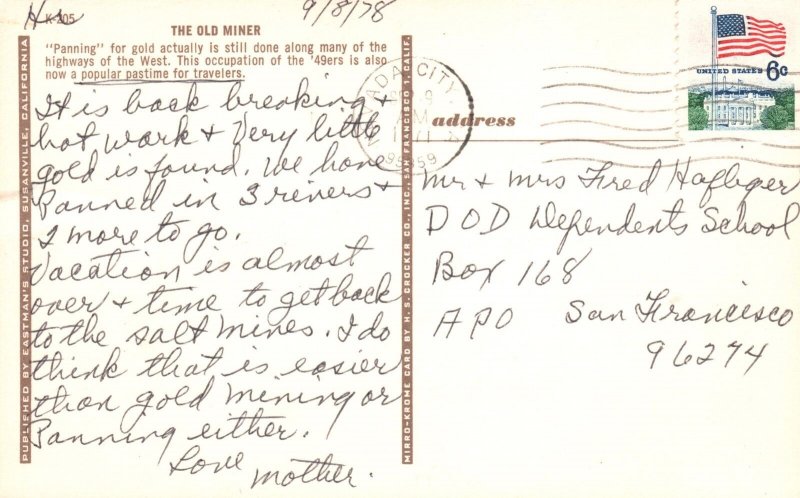 Hi
9/8/78
K-205
THE OLD MINER
"Panning" for gold actually is still done along many of the
highways of the West. This occupation of the '49ers is also
now a popular pastime for travelers.
It is back breaking +
hot work + Very little
gold is found. We have
Panned in 3 rivers +
1 more to go.
Vacation is almost
over + time to get back
to the salt mines. I do
think that is easier
than gold mining or
Panning either.
Love mother.
PUBLISHED BY EASTMAN'S STUDIO, SUSANVILLE, CALIFORNIA
MIRRO-KROME CARD BY H. S. CROCKER CO., INC., SAN FRANCISCO 1, CALIF.
ADA CITY
AM
95959
UNITED STATES 6c
address
Mr + Mrs Fred Hafliger
DOD Dependents School
Box 168
APO San Francisco
96274